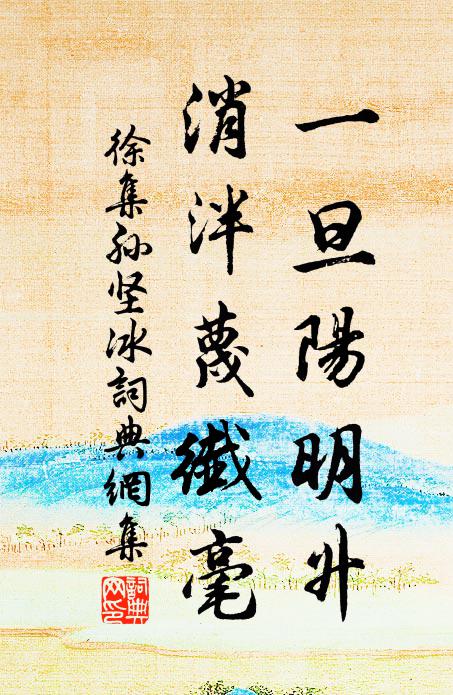 一旦陽明升
消泮蔑纖毫
徐集孙坚冰詞典網集
詞典